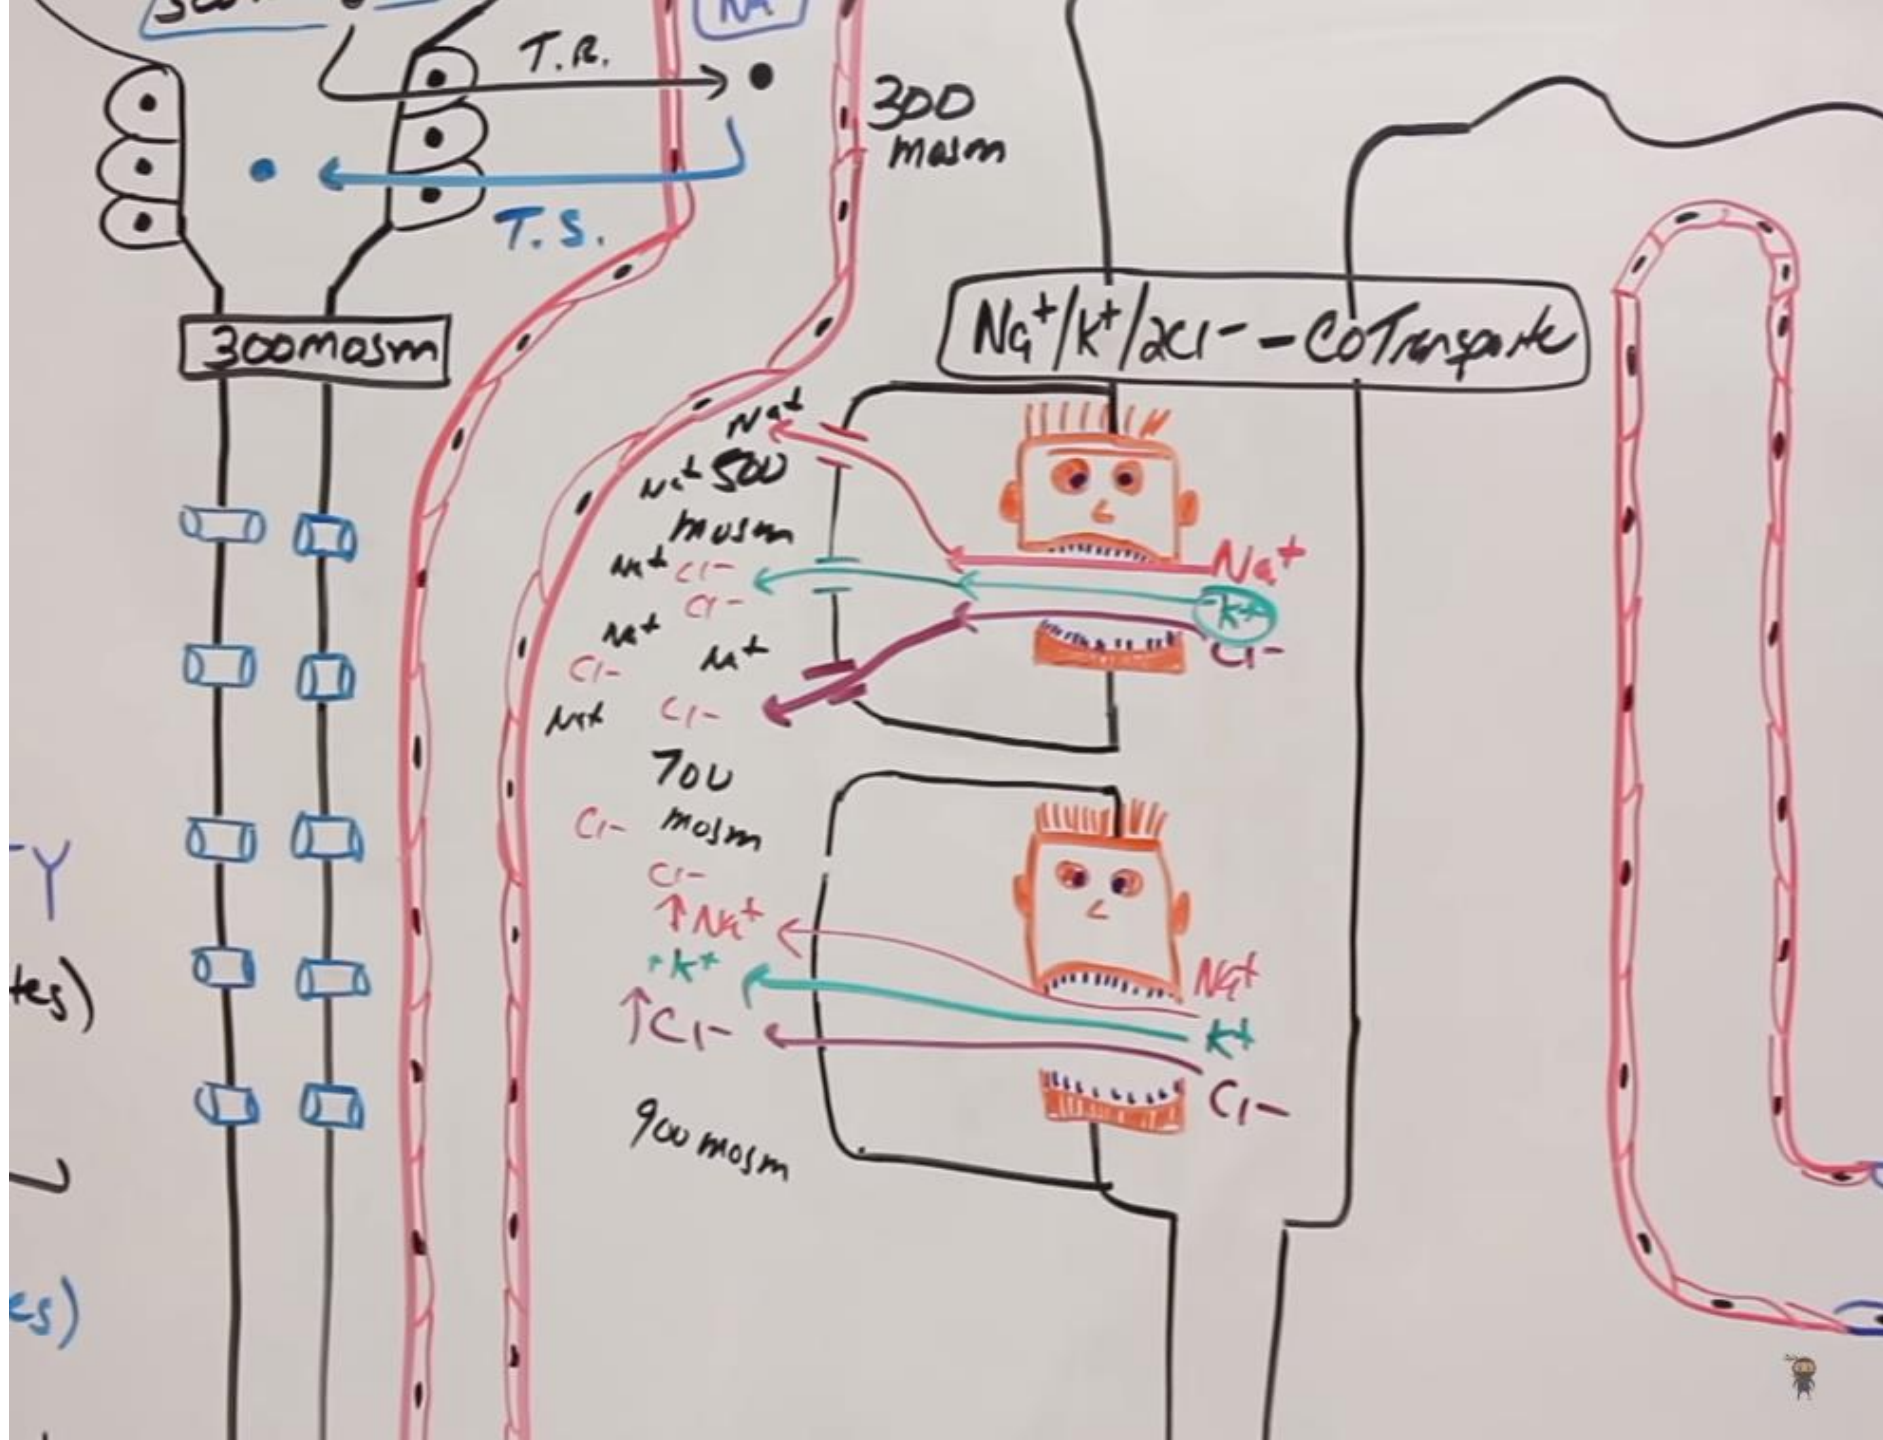 T.R.
NA
300
mosm
T.S.
300mosm
Na+/K+/2Cl- - CoTransporte
Na+
Na+ 500
mosm
Na+ Cl-
Cl-
Na+
Cl-
Na+
Na+ Cl-
Na+
K+
Cl-
700
mosm
Cl-
Cl-
↑Na+
K+
↑Cl-
Na+
K+
Cl-
900mosm
TY
tes)
es)